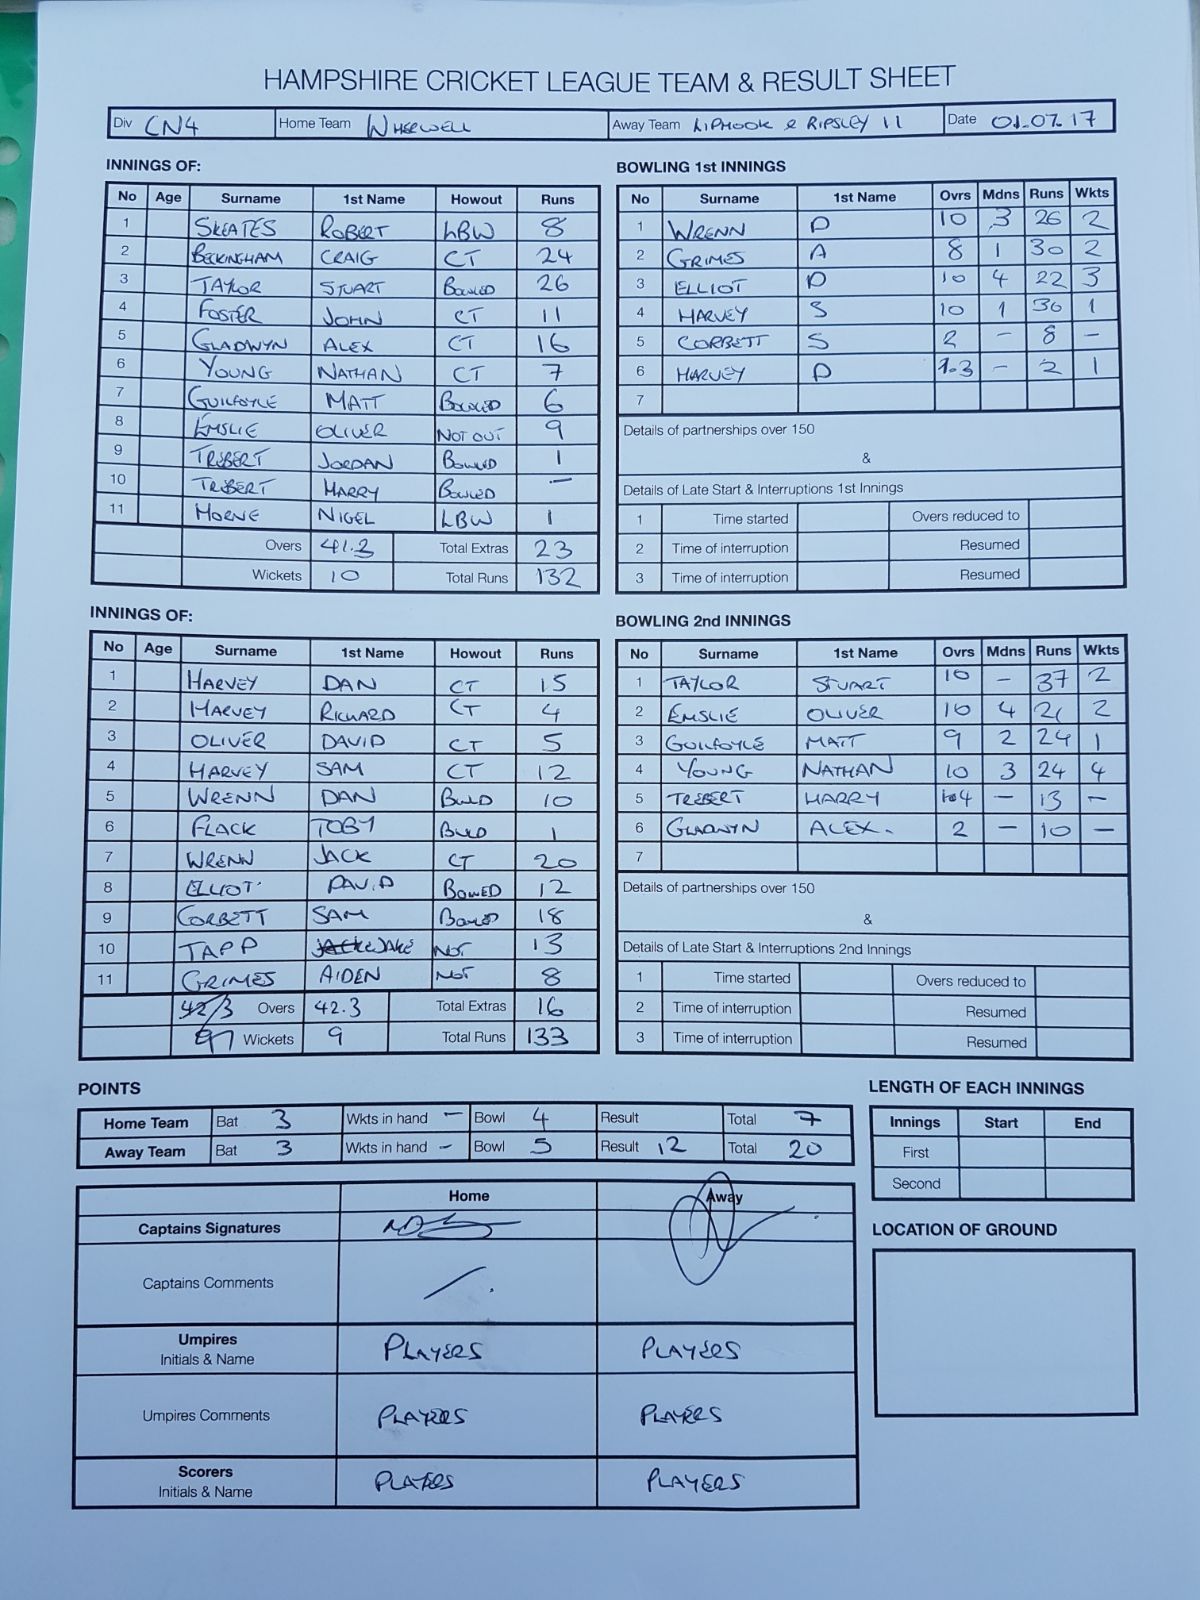 HAMPSHIRE CRICKET LEAGUE TEAM & RESULT SHEET
Div CN4 Home Team WHERWELL Away Team LIPHOOK & RIPSLEY II Date 01.07.17
INNINGS OF:
No Age Surname 1st Name Howout Runs
1 SKEATES ROBERT LBW 8
2 BECKINGHAM CRAIG CT 24
3 TAYLOR STUART BOWLED 26
4 FOSTER JOHN CT 11
5 GLADWYN ALEX CT 16
6 YOUNG NATHAN CT 7
7 GUILFOYLE MATT BOWLED 6
8 EMSLIE OLIVER NOT OUT 9
9 TREBERT JORDAN BOWLED 1
10 TREBERT HARRY BOWLED —
11 HORNE NIGEL LBW 1
Overs 41.3 Total Extras 23
Wickets 10 Total Runs 132
BOWLING 1st INNINGS
No Surname 1st Name Ovrs Mdns Runs Wkts
1 WRENN D 10 3 26 2
2 GRIMES A 8 1 30 2
3 ELLIOT D 10 4 22 3
4 HARVEY S 10 1 36 1
5 CORBETT S 2 – 8 –
6 HARVEY D 1.3 – 2 1
7
Details of partnerships over 150
&
Details of Late Start & Interruptions 1st Innings
1 Time started Overs reduced to
2 Time of interruption Resumed
3 Time of interruption Resumed
INNINGS OF:
No Age Surname 1st Name Howout Runs
1 HARVEY DAN CT 15
2 HARVEY RICHARD CT 4
3 OLIVER DAVID CT 5
4 HARVEY SAM CT 12
5 WRENN DAN BWLD 10
6 FLACK TOBY BWLD 1
7 WRENN JACK CT 20
8 ELLIOT DAVID BOWED 12
9 CORBETT SAM BOWLED 18
10 TAPP JAKE NOT 13
11 GRIMES AIDEN NOT 8
42/3 Overs 42.3 Total Extras 16
Wickets 9 Total Runs 133
BOWLING 2nd INNINGS
No Surname 1st Name Ovrs Mdns Runs Wkts
1 TAYLOR STUART 10 – 37 2
2 EMSLIE OLIVER 10 4 21 2
3 GUILFOYLE MATT 9 2 24 1
4 YOUNG NATHAN 10 3 24 4
5 TREBERT HARRY – 13 –
6 GLADWYN ALEX. 2 – 10 –
7
Details of partnerships over 150
&
Details of Late Start & Interruptions 2nd Innings
1 Time started Overs reduced to
2 Time of interruption Resumed
3 Time of interruption Resumed
POINTS
Home Team Bat 3 Wkts in hand – Bowl 4 Result Total 7
Away Team Bat 3 Wkts in hand – Bowl 5 Result 12 Total 20
LENGTH OF EACH INNINGS
Innings Start End
First
Second
Home Away
Captains Signatures
Captains Comments
Umpires
Initials & Name PLAYERS PLAYERS
Umpires Comments PLAYERS PLAYERS
Scorers
Initials & Name PLAYERS PLAYERS
LOCATION OF GROUND